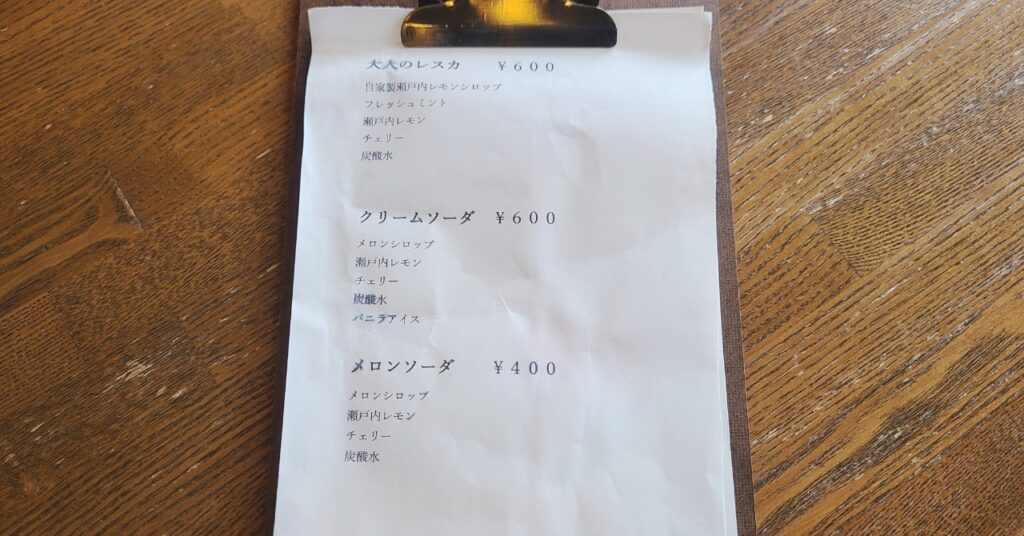 大人のレスカ ￥６００
自家製瀬戸内レモンシロップ
フレッシュミント
瀬戸内レモン
チェリー
炭酸水
クリームソーダ ￥６００
メロンシロップ
瀬戸内レモン
チェリー
炭酸水
バニラアイス
メロンソーダ ￥４００
メロンシロップ
瀬戸内レモン
チェリー
炭酸水